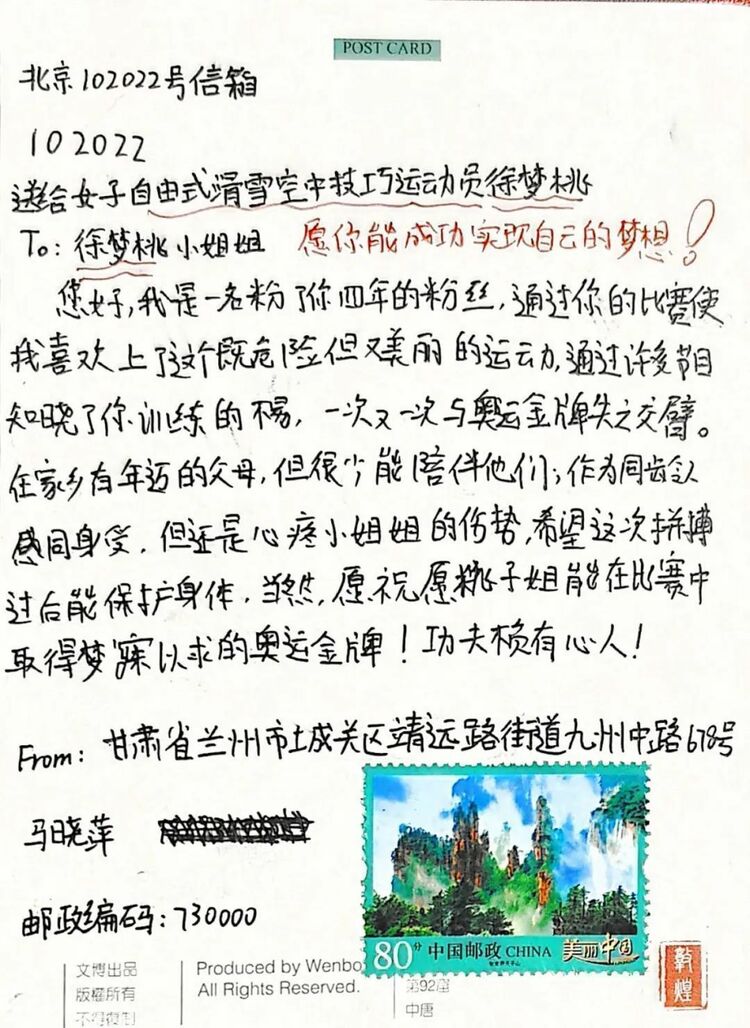 POST CARD
北京102022号信箱
102022
送给女子自由式滑雪空中技巧运动员徐梦桃
To: 徐梦桃小姐姐 愿你能成功实现自己的梦想!
您好,我是一名粉了你四年的粉丝,通过你的比赛使
我喜欢上了这个既危险但又美丽的运动,通过许多节目
知晓了你训练的不易,一次又一次与奥运金牌失之交臂。
在家乡有年迈的父母,但很少能陪伴他们;作为同龄人
感同身受,但还是心疼小姐姐的伤势,希望这次拼搏
过后能保护身体,当然,愿祝愿桃子姐能在比赛中
取得梦寐以求的奥运金牌!功夫赖有心人!
From: 甘肃省兰州市城关区靖远路街道九州中路678号
马晓萍
邮政编码:730000
80分 中国邮政 CHINA 美丽中国
敦煌
文博出品
版權所有
不得複制
Produced by Wenbo
All Rights Reserved.
第92窟
中唐